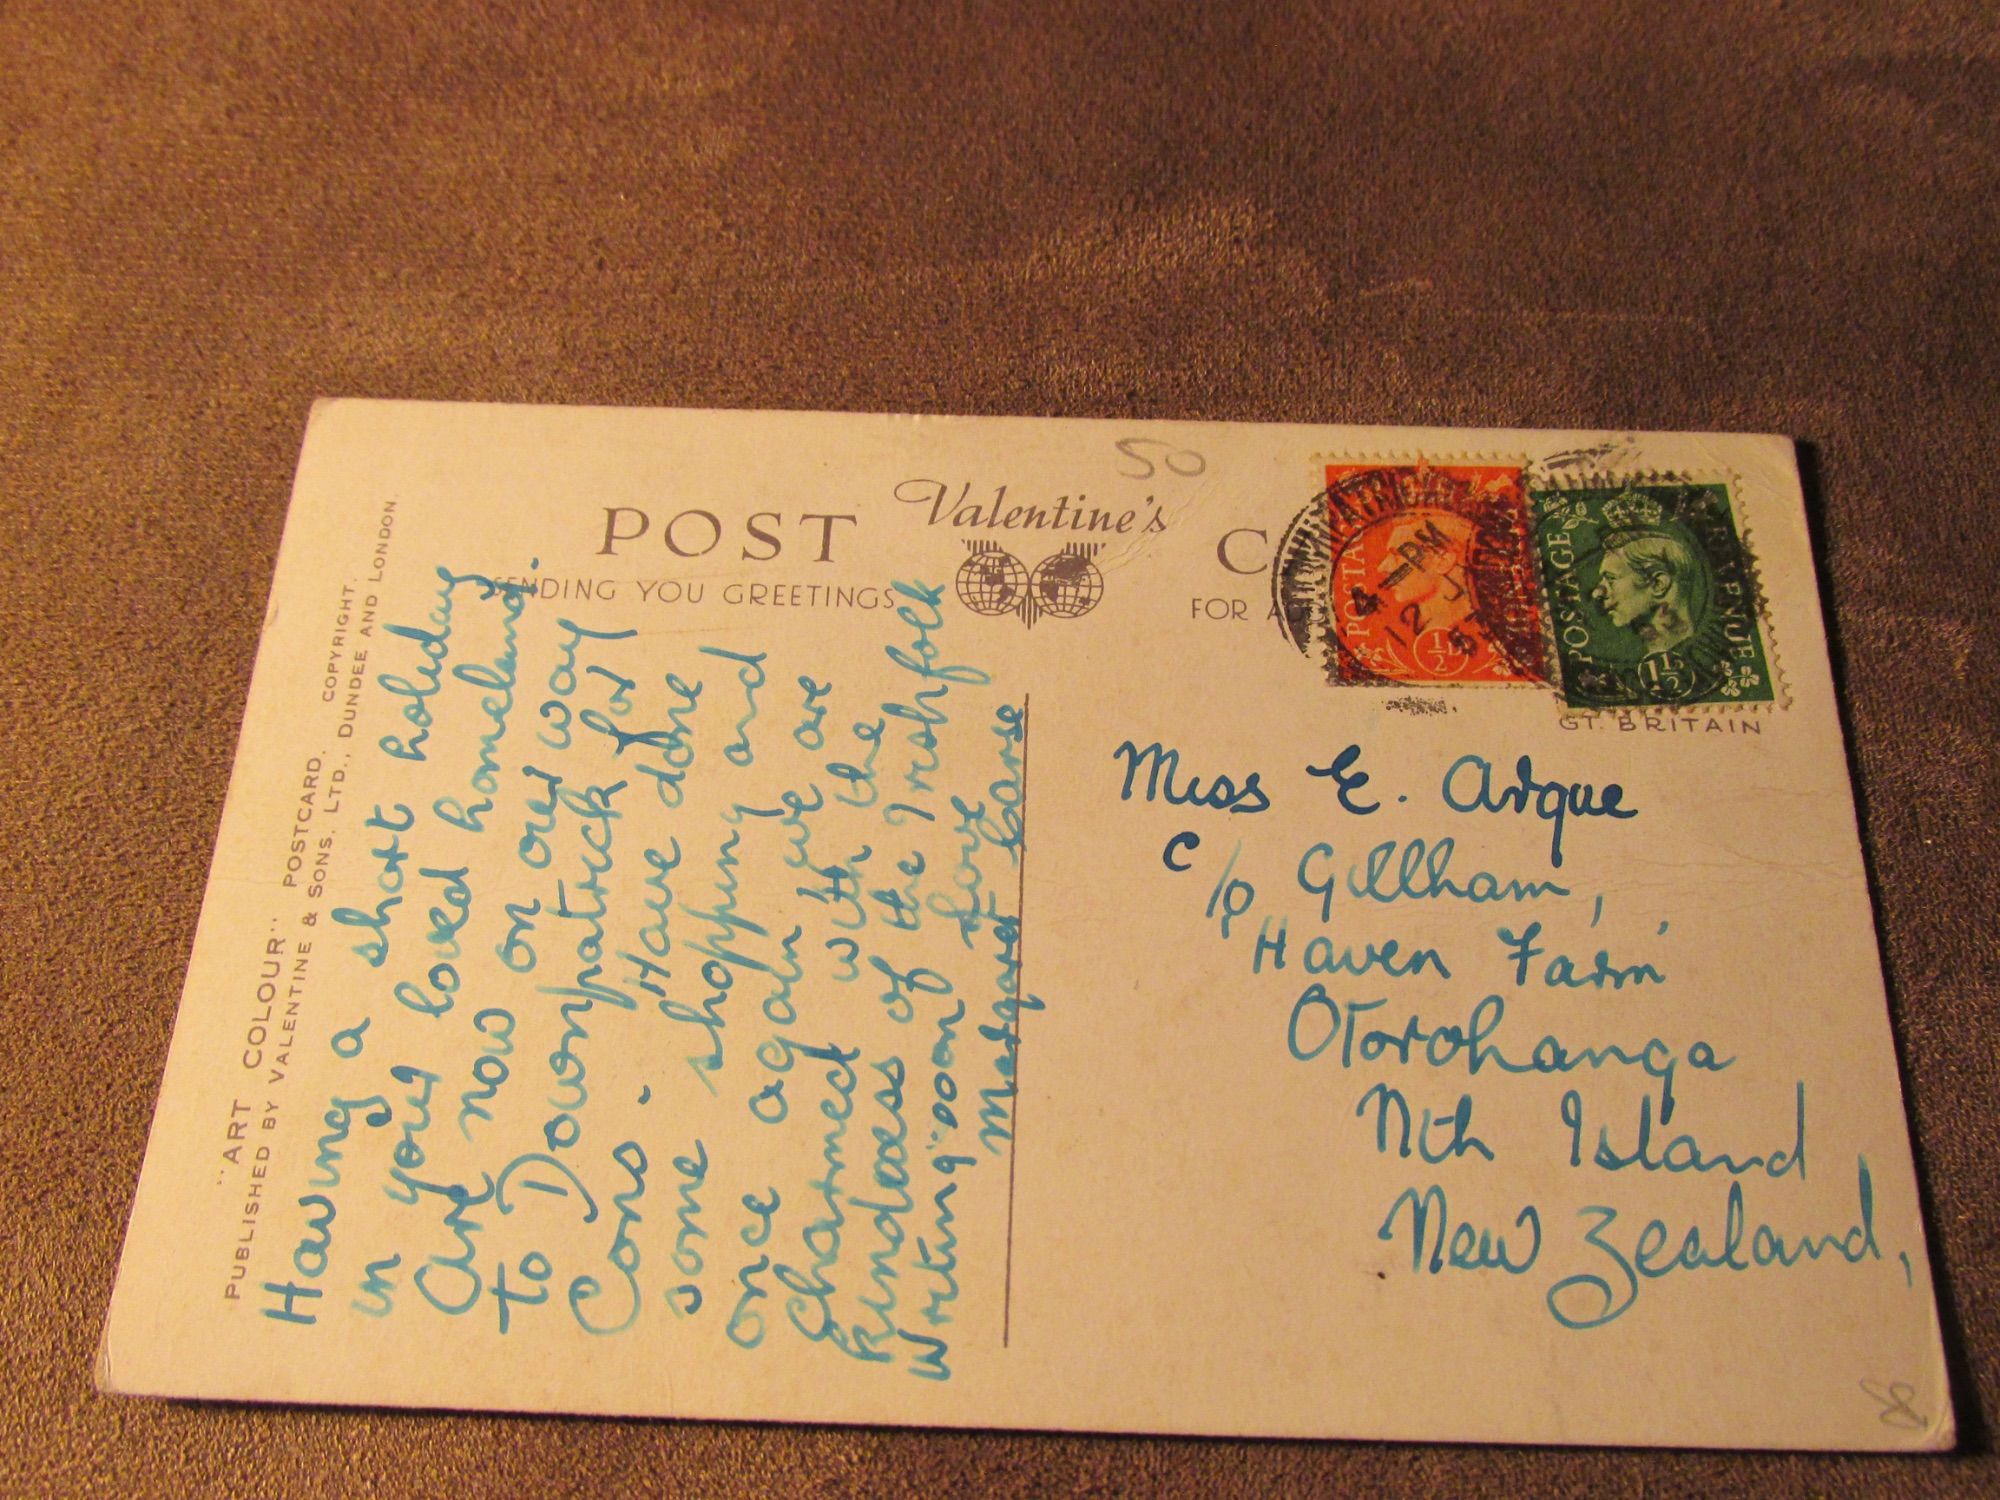 "ART COLOUR" POSTCARD. COPYRIGHT.
PUBLISHED BY VALENTINE & SONS. LTD., DUNDEE AND LONDON.
50
POST
Valentine's
C
SENDING YOU GREETINGS
FOR A
POSTAGE
1/2D
POSTAGE REVENUE
1 1/2D
PM
12 J
GT. BRITAIN
Having a short holiday
in your loved homeland.
Are now on our way
to Downpatrick for
Cons. Have done
some shopping and
once again we are
charmed with the
kindness of the Irish folk
Writing soon Love
Margaret
Miss E. Argue
c/o Gillham,
Haven Farm
Otorohanga
Nth Island
New Zealand,